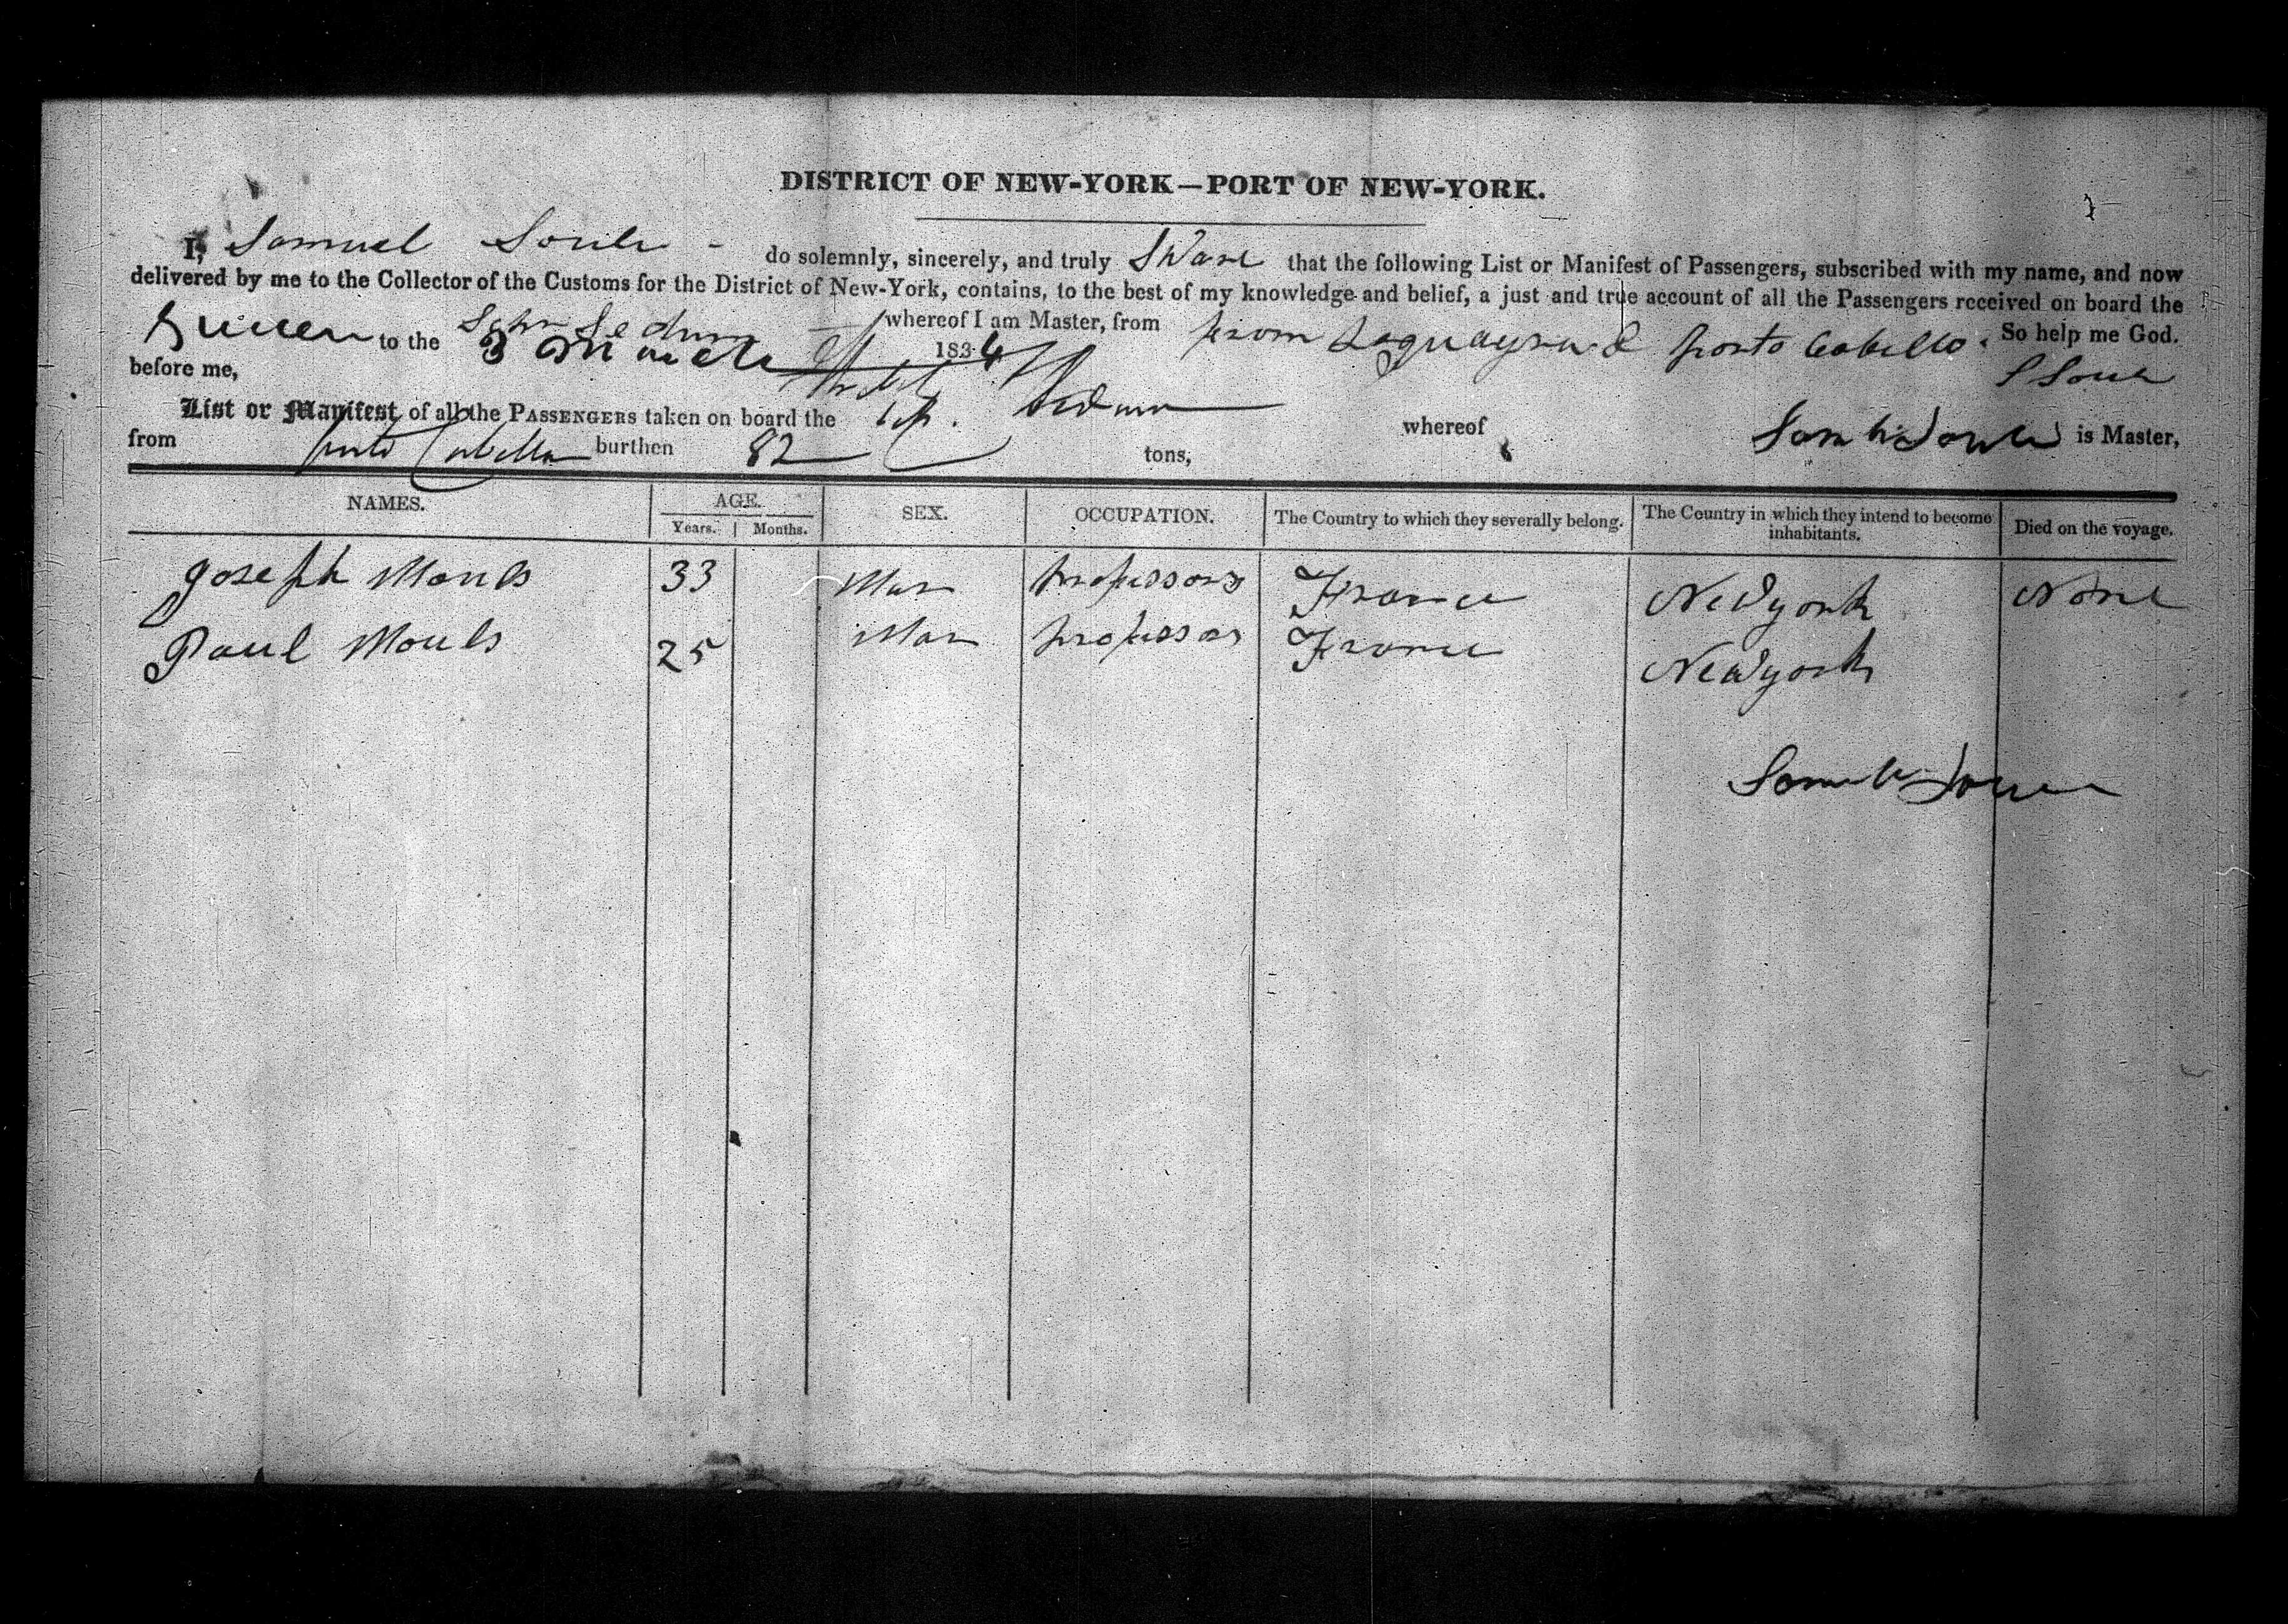 DISTRICT OF NEW-YORK—PORT OF NEW-YORK.
I, Samuel Soule - do solemnly, sincerely, and truly Sware that the following List or Manifest of Passengers, subscribed with my name, and now
delivered by me to the Collector of the Customs for the District of New-York, contains, to the best of my knowledge and belief, a just and true account of all the Passengers received on board the
Schr whereof I am Master, from from Laguayra & Porto Cabello. So help me God.
to the 3 March 1834
before me, S Soule
List or Manifest of all the PASSENGERS taken on board the whereof Soule is Master,
from Porto Cabello burthen 82 tons,
NAMES. AGE. SEX. OCCUPATION. The Country to which they severally belong. The Country in which they intend to become inhabitants. Died on the voyage.
Years. Months.
Joseph Mouls 33 Man professors France New york None
Paul Mouls 25 Man professor France New york
Soule